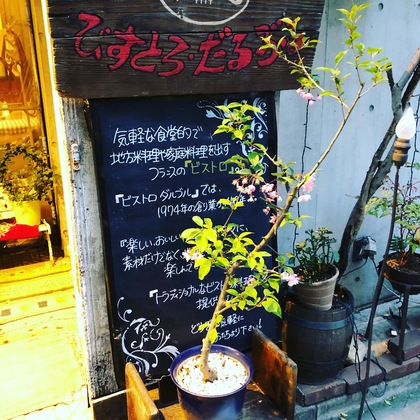 びすとろ・だるごる
気軽な食堂的で
地方料理や家庭料理を出す
フランスの『ビストロ
『ビストロ ダルゴル』では、
1974年の創業
『楽しい、おいしい
素材だけでなく、
楽しんで
『トラディショナルなビストロ料理
提供
気軽に
お立ちより下さい!